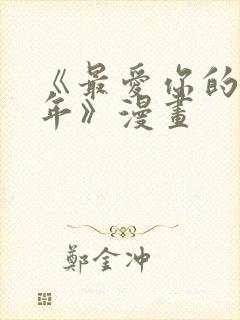 《最愛你的
年》漫畫
鄭金冲